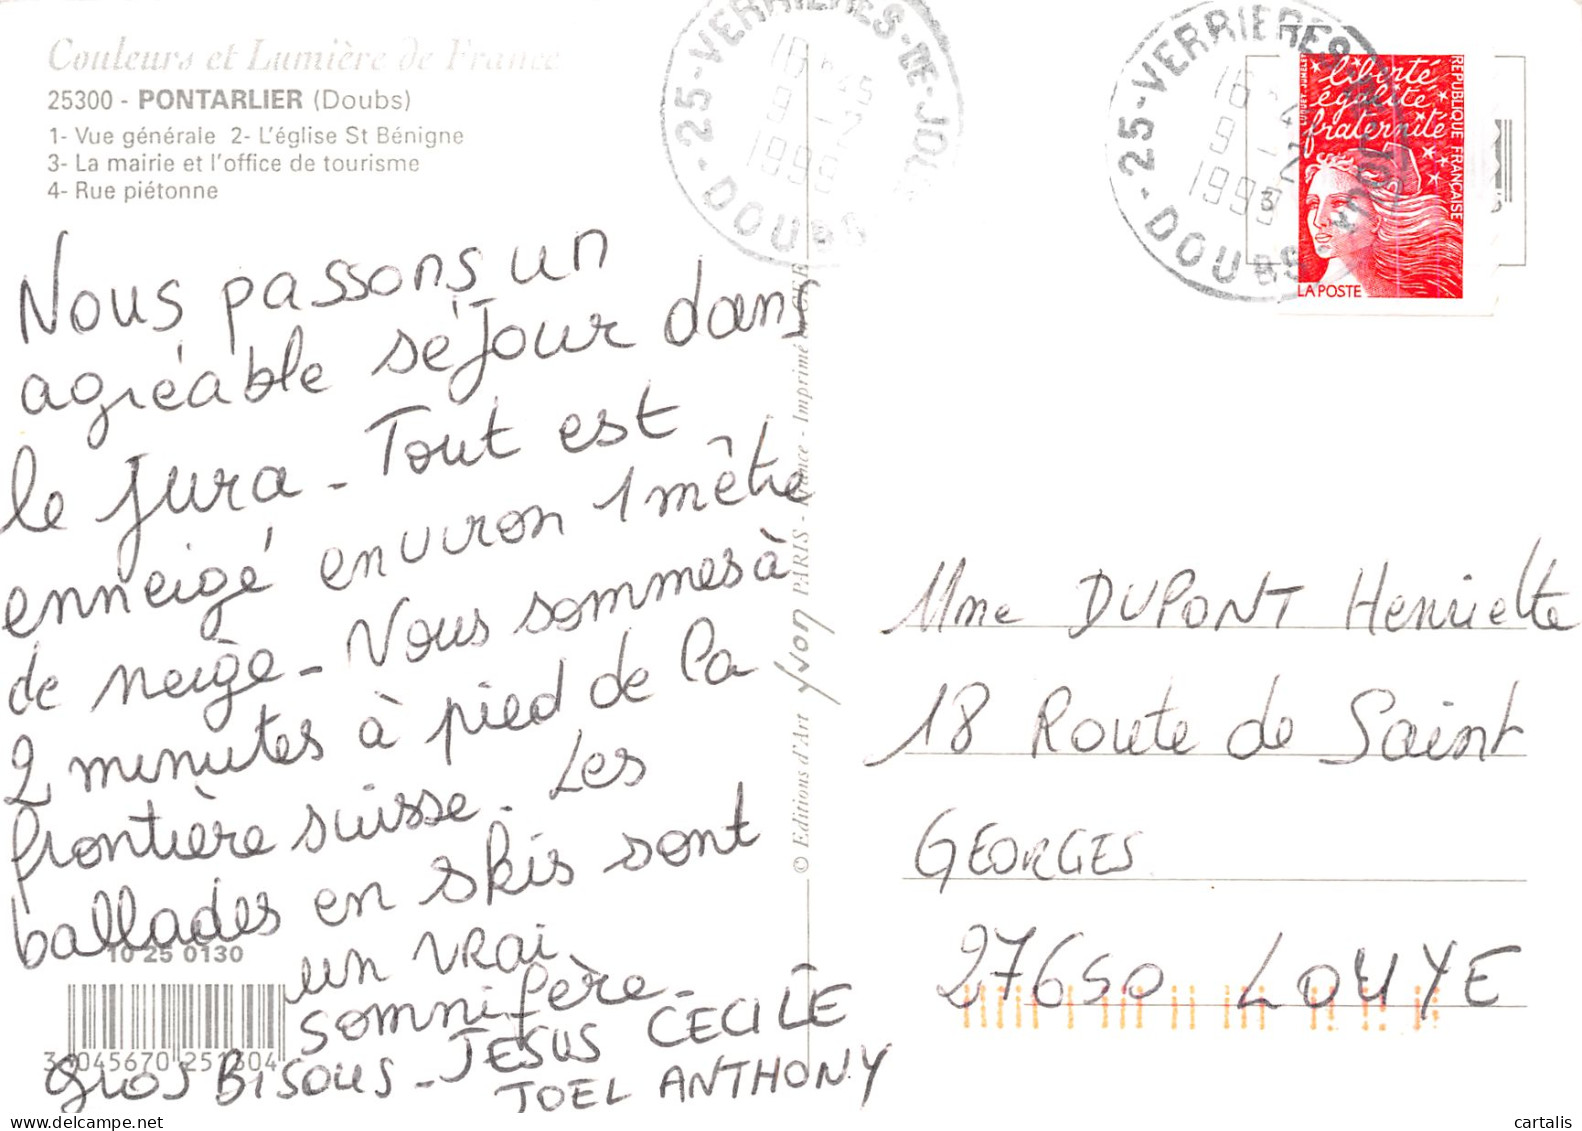 Couleurs et Lumière de France
25300 - PONTARLIER (Doubs)
1- Vue générale 2- L'église St Bénigne
3- La mairie et l'office de tourisme
4- Rue piétonne
Nous passons un
agréable séjour dans
le Jura - Tout est
enneigé environ 1 mètre
de neige - Nous sommes à
2 minutes à pied de la
frontière suisse. Les
ballades en skis sont
un vrai
somnifère -
gros BISOUS - JESUS CECILE
JOEL ANTHONY
10 25 0130
© Editions d'Art Yvon PARIS - France - Imprimé
25-VERRIERES-DE-JOUX
16 45
9 - 2
1999
DOUBS
25-VERRIERES-DE-JOUX
16
9 - 2
1999
DOUBS
liberté
égalité
fraternité
REPUBLIQUE FRANÇAISE
LA POSTE
Mme DUPONT Henriette
18 Route de Saint
GEORGES
27650 LOUYE
cartalis
www.delcampe.net